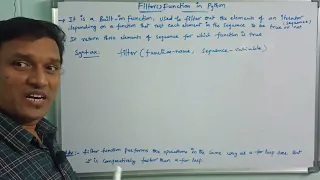 Filter() Function in Python
→ It is a Built-in Function, used to filter out the elements of an iterator (sequence)
depending on a function that test each element in the sequence to be true or not
It return those elements of sequence for which function is True
Syntax: filter(function-name, sequence-iterable)
:- Filter function performs the operations in the same way as a for loop does but
it is comparatively faster than a for loop.